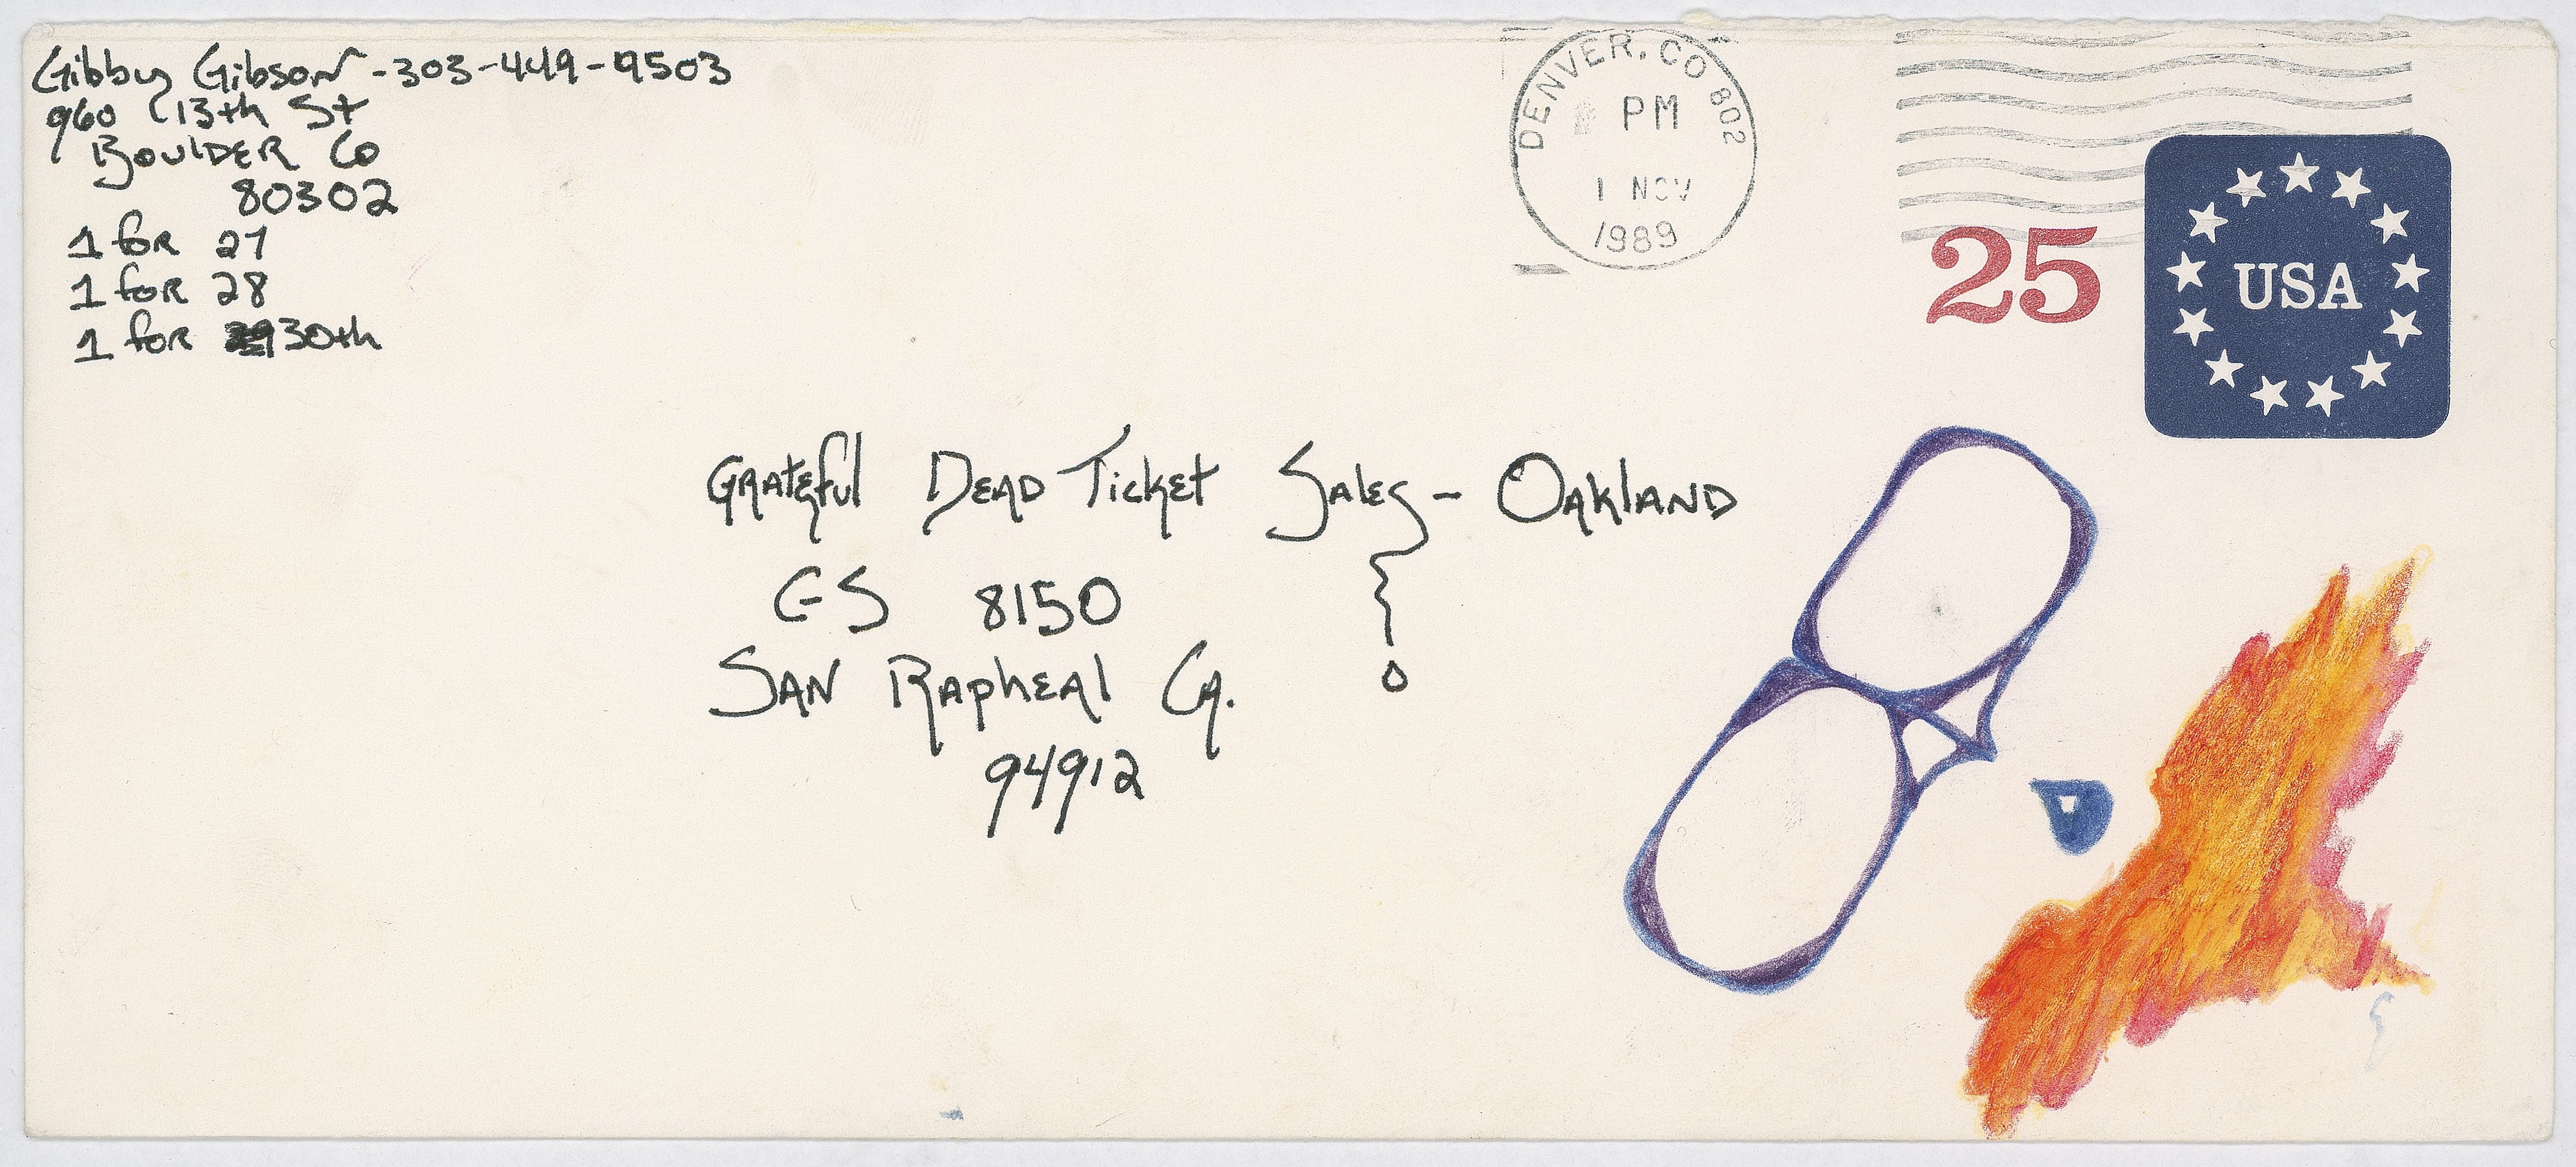 Gibby Gibson - 303-449-9503
960 13th St
Boulder Co
80302
1 for 27
1 for 28
1 for 30th
DENVER, CO 802
PM
1 NOV
1989
25
USA
Grateful Dead Ticket Sales - Oakland
GS 8150
San Rapheal Ca.
94912